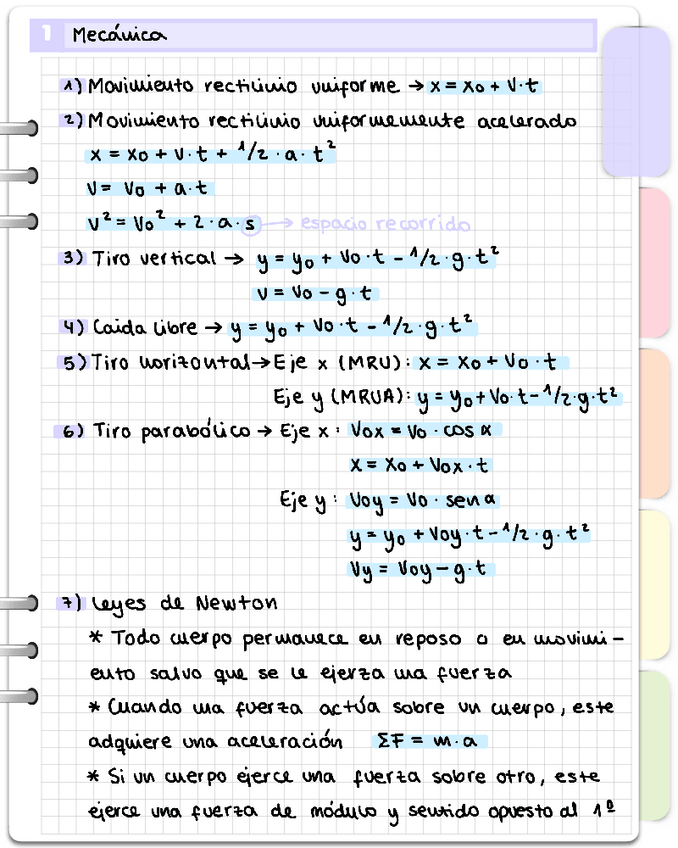 1 Mecánica
1) Movimiento rectilinio uniforme → x = x₀ + v·t
2) Movimiento rectilinio uniformemente acelerado
x = x₀ + v·t + 1/2 · a · t²
v = v₀ + a·t
v² = v₀² + 2·a·s → espacio recorrido
3) Tiro vertical → y = y₀ + v₀·t - 1/2·g·t²
v = v₀ - g·t
4) Caida libre → y = y₀ + v₀·t - 1/2·g·t²
5) Tiro horizontal → Eje x (MRU): x = x₀ + v₀·t
Eje y (MRUA): y = y₀ + v₀·t - 1/2·g·t²
6) Tiro parabólico → Eje x: v₀x = v₀ · cos α
x = x₀ + v₀x · t
Eje y: v₀y = v₀ · sen α
y = y₀ + v₀y·t - 1/2·g·t²
vy = v₀y - g·t
7) Leyes de Newton
* Todo cuerpo permanece en reposo o en movimi-
ento salvo que se le ejerza una fuerza
* Cuando una fuerza actúa sobre un cuerpo, este
adquiere una aceleración ΣF = m·a
* Si un cuerpo ejerce una fuerza sobre otro, este
ejerce una fuerza de módulo y sentido opuesto al 1º